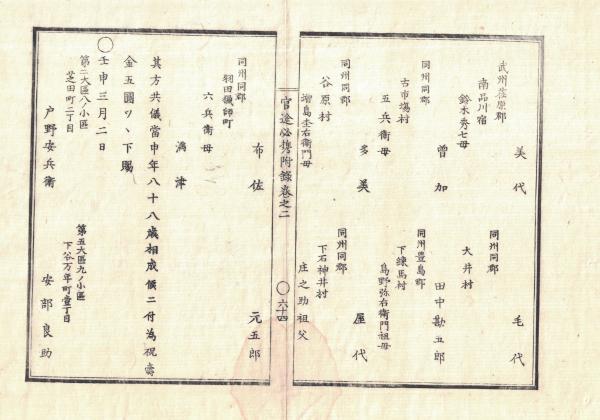 武州荏原郡
南品川宿
鈴木秀七母
美代
同州同郡
大井村
毛代
同州同郡
古市場村
五兵衛母
曽加
同州豊島郡
下練馬村
島野弥右衛門祖母
田中勘五郎
同州同郡
谷原村
増島圭右衛門母
多美
同州同郡
下石神井村
庄之助祖父
屋代
官途必携附録巻之二
〇六十四
同州同郡
羽田猟師町
六兵衛母
布佐
元五郎
満津
其方共儀當申年八十八歳相成候ニ付為祝壽
金五圓ツヽ下賜
〇壬申三月二日
第二大區八ノ小區
芝田町二丁目
戸野安兵衛
第五大區九ノ小區
下谷万年町壹丁目
安部良助